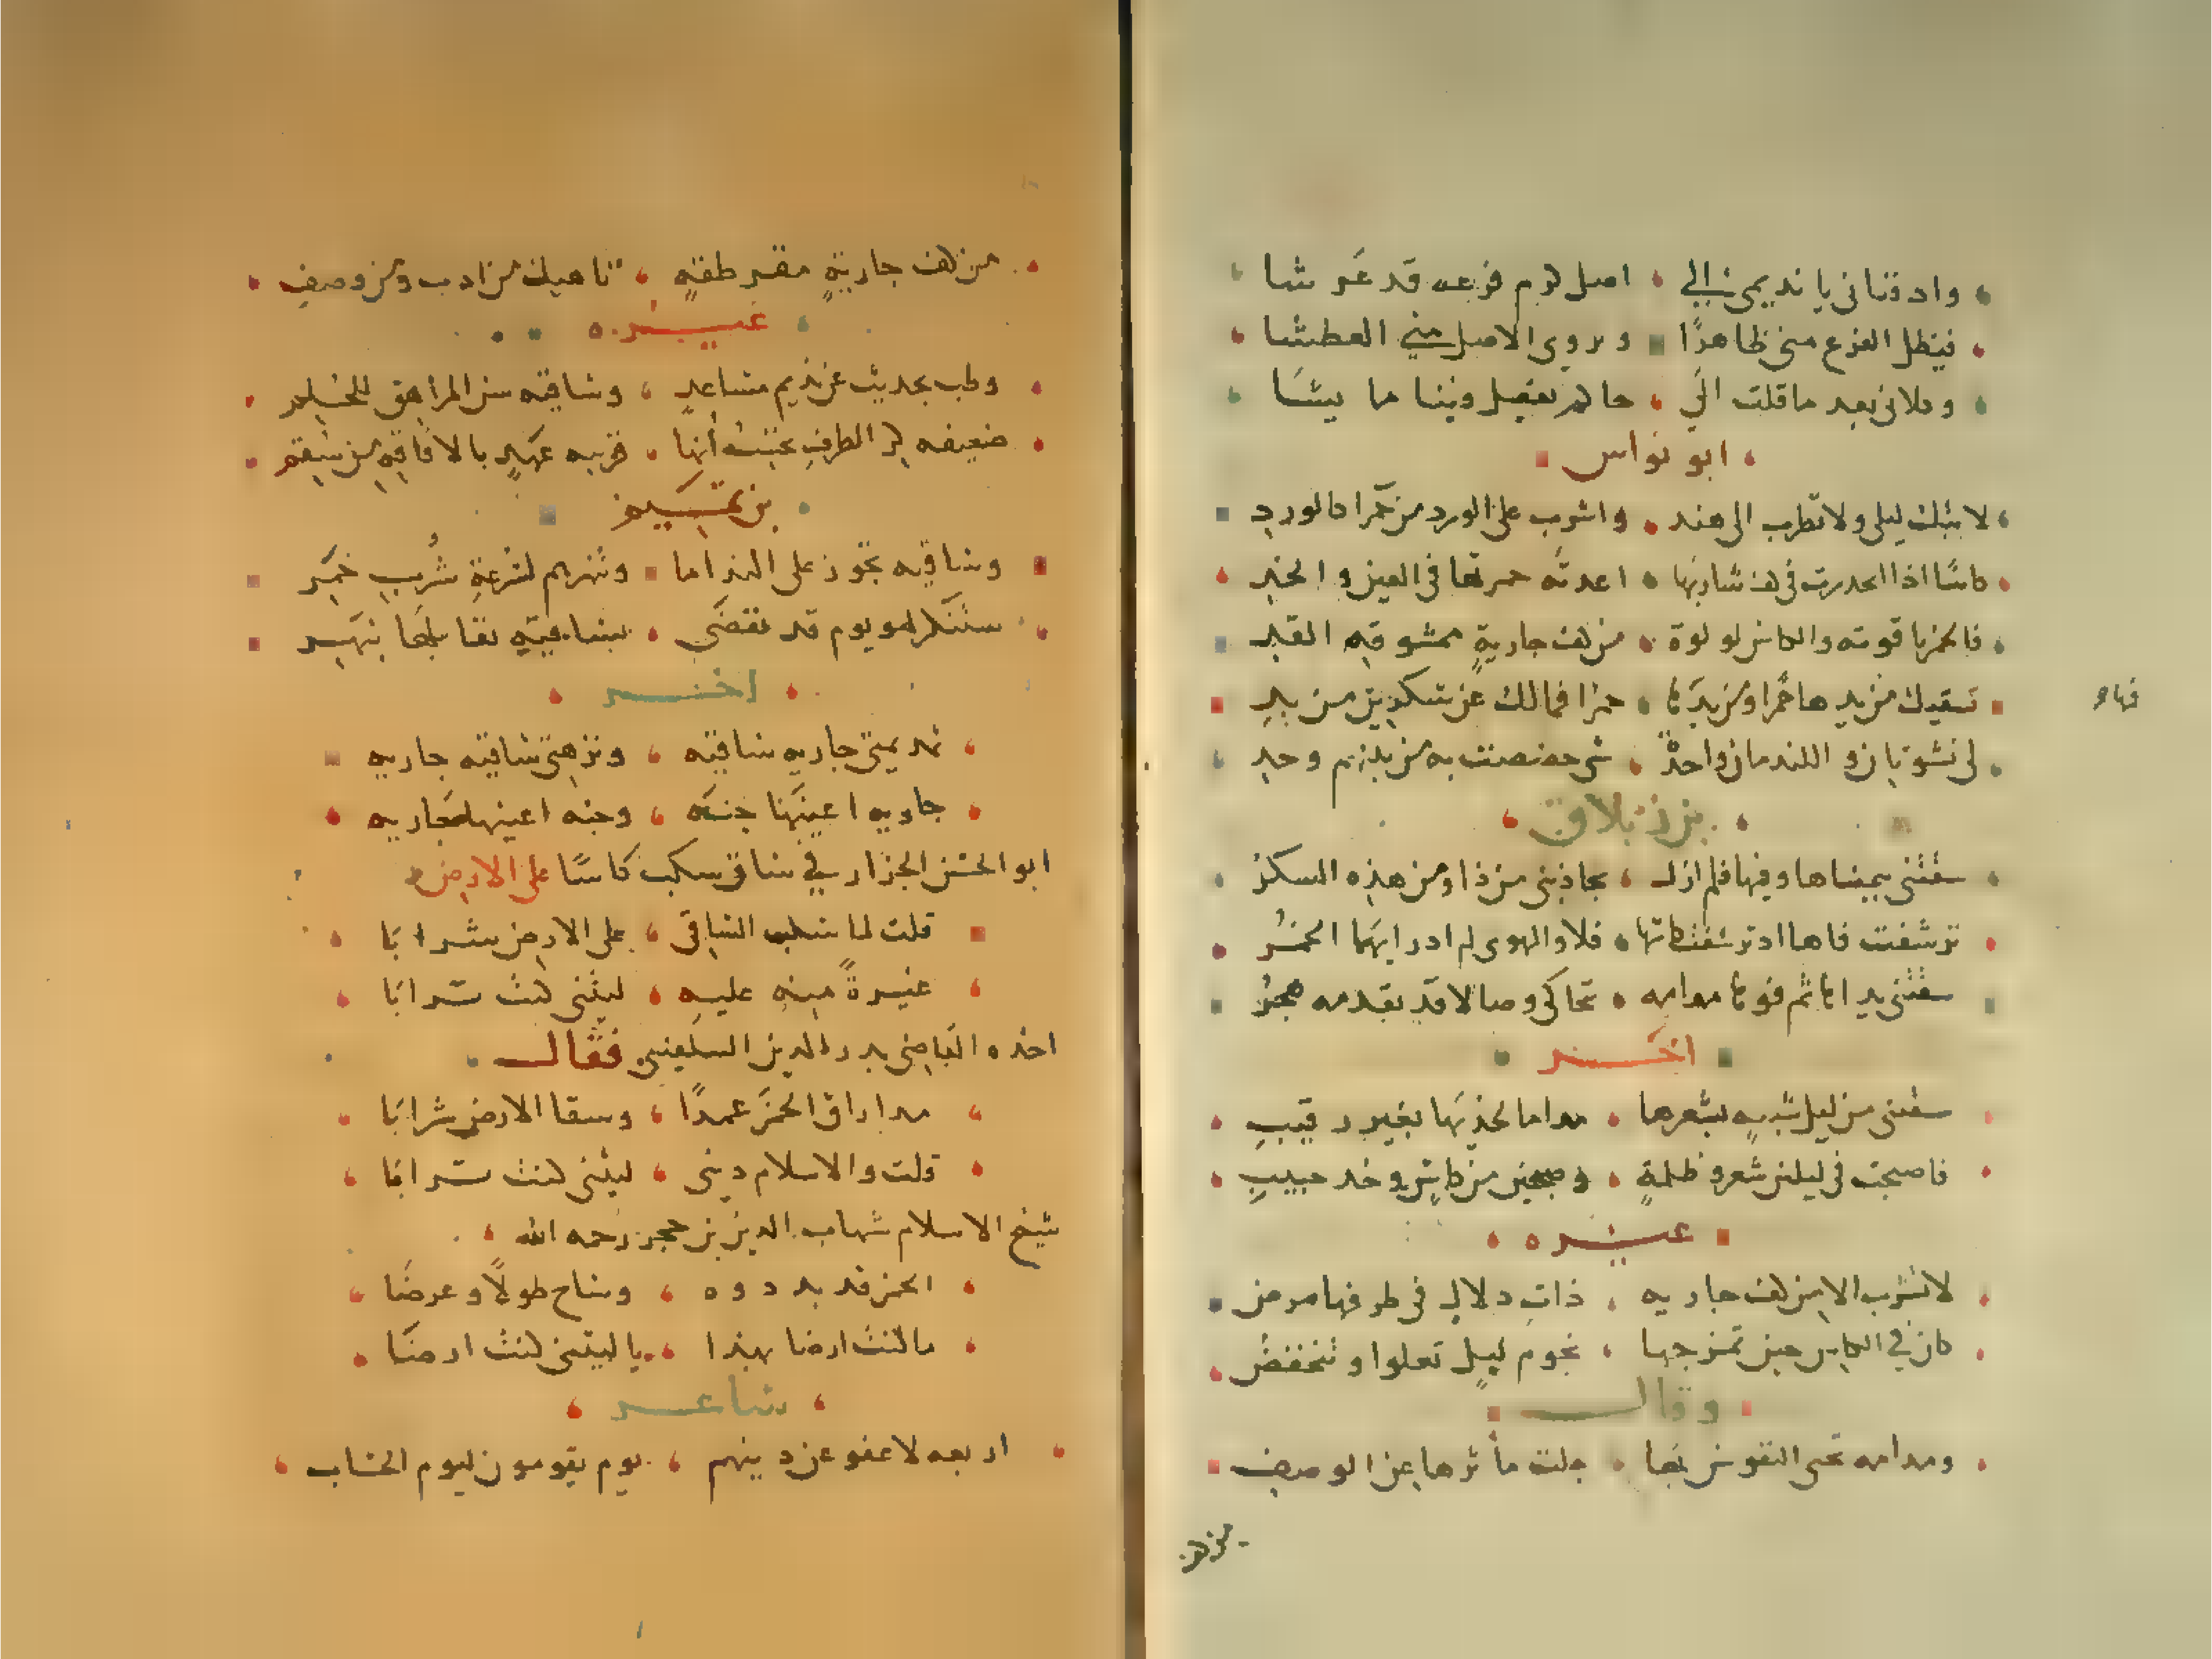 وادفناني يا نديمي الي اصل كرم فرعه قد عرشا
فيظل الفرع مني ظاهرًا ويروي الاصل مني العطشا
وكلاني بعد ما قلت الي حاكم يفصل فينا ما يشَا
ابو نواس
لا تبك ليلى ولا تطرب الى هند واشرب على الورد من حمرا كالورد
كاسًا اذا انحدرت في كف شاربها اعدته حمرتها في العين والخد
فالخمر ياقوته والكاس لولوة من كف جاريةٍ ممشوقه القد
تسقيك من يدها خمرا ومن فمها خمرا فمالك عن سكرين من بدِ
لي نشوتان وللندمان واحدةٌ شي خصصت به من بينهم وحدي
فمها
بن قلاقس
سقتني بيمناها وفيها فلم ازل يجاذبني من ذا ومن هذه السكرُ
ترشفت فاها اذ ترشفت كاسها فلا والهوى لم ادر ايهما الخمرُ
سقتني مدامه تحاكي وصالا قد تقدمه هجرُ
اخـــر
سقتني من ليل شبيهٍ بشعرها مداما بغير رقيبِ
فاصبحت في ليلين شعر وظلمةٍ وصبحين من كاسٍ وخد حبيبِ
غيــره
لا تشرب الا من كف جاريه ذات دلالٍ في طرفها مرض
كان في الكاس حين تمزجها نجوم ليلٍ تعلوا وتنخفضُ
وقال
ومدامه تحي النفوس بها جلت مآثرها عن الوصفِ
من كف
من كف جاريةٍ مقرطقةٍ ناهيك من ادب ومن وصفِ
غيــره
وطب بحديث عن نديم مساعدٍ وساقيه سن المراهق للحلم
ضعيفه كر الطرف تحسب أنها قريبه عهدٍ بالافاقهِ من سقم
بن تميم
وساقيه تجوز على النداما وتنهرهم لسرعةِ شُربِ خمر
سنشكر لهو يوم قد تقضى بساقيةٍ تقابلها بنهر
اخــر
نديمتي جاريه ساقيه ونزهتي ساقيه جاريه
جاريه اعينها جنه وجنه اعينها جاريه
ابو الحسن الجزار في ساق سكب كاسًا على الارض
قلت لما سكب الساقي على الارض شرابَا
غيرةً منه عليه ليتني كنت ترابَا
اخذه القاضي بدر الدين البلقيني فقال
مداراق الخمر عمدًا وسقا الارض شرابَا
قلت والاسلام ديني ليتني كنت ترابَا
شيخ الاسلام شهاب الدين بن حجر رحمه الله
الخمر قد بددوه وساح طولًا وعرضًا
ما كنت ارضا بهذا يا ليتني كنت ارضًا
شاعــر
اربعه لا عفو عن دينهم يوم يقومون ليوم الحساب